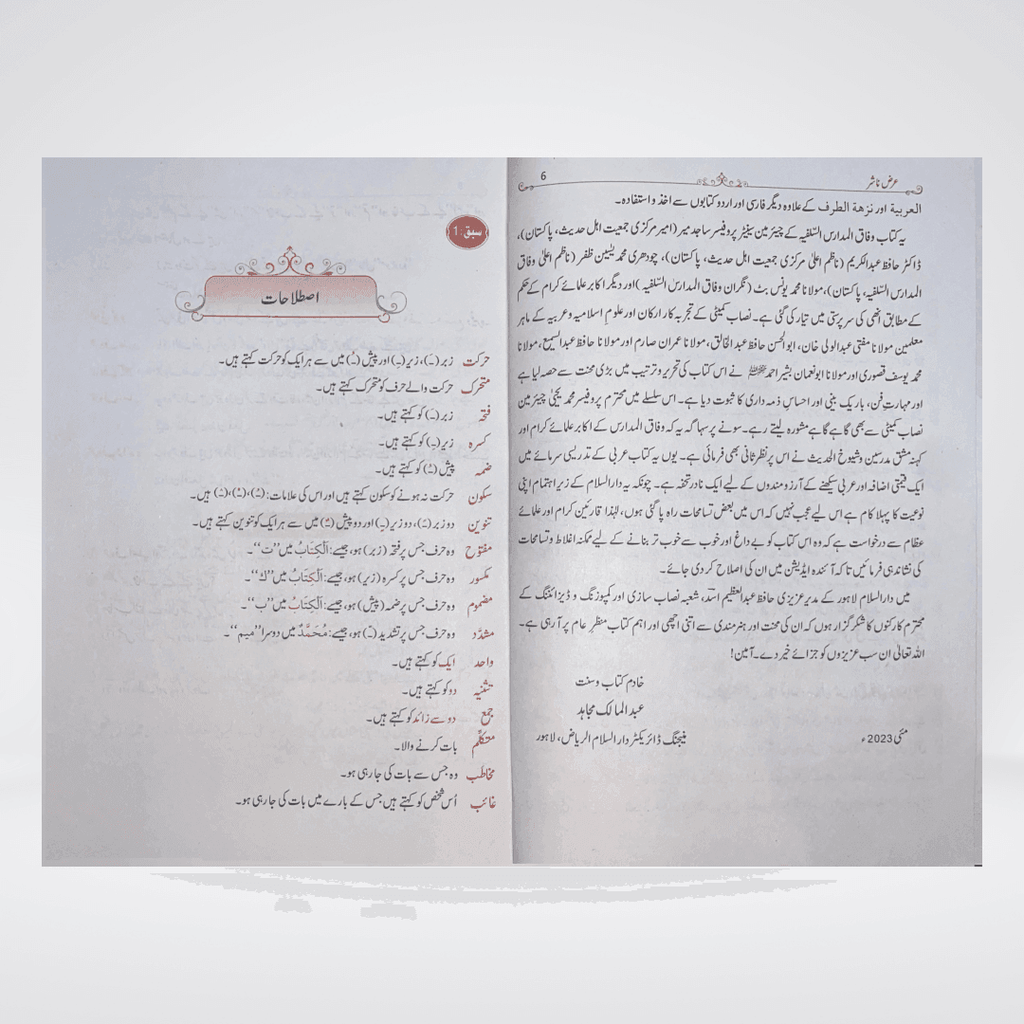 عرض ناشر
6
العربية اور نزهة الطرف کے علاوہ دیگر فارسی اور اردو کتابوں سے اخذ و استفادہ۔
یہ کتاب وفاق المدارس السّلفیہ کے چیئرمین سینیٹر پروفیسر ساجد میر (امیر مرکزی جمعیت اہل حدیث، پاکستان)،
ڈاکٹر حافظ عبدالکریم (ناظم اعلیٰ مرکزی جمعیت اہل حدیث، پاکستان)، چودھری محمد یٰسین ظفر (ناظم اعلیٰ وفاق
المدارس السّلفیہ، پاکستان)، مولانا محمد یونس بٹ (نگران وفاق المدارس السّلفیہ) اور دیگر اکابر علمائے کرام کے حکم
کے مطابق انھی کی سرپرستی میں تیار کی گئی ہے۔ نصاب کمیٹی کے تجربہ کار ارکان اور علومِ اسلامیہ و عربیہ کے ماہر
معلمین مولانا مفتی عبدالولی خان، ابوالحسن حافظ عبدالخالق، مولانا عمران صارم اور مولانا حافظ عبدالسمیع، مولانا
محمد یوسف قصوری اور مولانا ابونعمان بشیر احمد نے اس کتاب کی تحریر و ترتیب میں بڑی محنت سے حصہ لیا ہے
اور مہارتِ فن، باریک بینی اور احساسِ ذمہ داری کا ثبوت دیا ہے۔ اس سلسلے میں محترم پروفیسر محمد یحییٰ چیئرمین
نصاب کمیٹی سے بھی گاہے گاہے مشورہ لیتے رہے۔ سونے پر سہاگہ یہ کہ وفاق المدارس کے اکابر علمائے کرام اور
کہنہ مشق مدرسین و شیوخ الحدیث نے اس پر نظر ثانی بھی فرمائی ہے۔ یوں یہ کتاب عربی کے تدریسی سرمائے میں
ایک قیمتی اضافہ اور عربی سیکھنے کے آرزومندوں کے لیے ایک نادر تحفہ ہے۔ چونکہ یہ دارالسلام کے زیرِ اہتمام اپنی
نوعیت کا پہلا کام ہے اس لیے عجب نہیں کہ اس میں بعض تسامحات راہ پا گئی ہوں، لہٰذا قارئین کرام اور علمائے
عظام سے درخواست ہے کہ وہ اس کتاب کو بے داغ اور خوب سے خوب تر بنانے کے لیے ممکنہ اغلاط و تسامحات
کی نشاندہی فرمائیں تاکہ آئندہ ایڈیشن میں ان کی اصلاح کر دی جائے۔
میں دارالسلام لاہور کے مدیر عزیزی حافظ عبدالعظیم اسد، شعبہ نصاب سازی اور کمپوزنگ و ڈیزائننگ کے
محترم کارکنوں کا شکر گزار ہوں کہ ان کی محنت اور ہنرمندی سے اتنی اچھی اور اہم کتاب منظرِ عام پر آ رہی ہے۔
اللہ تعالیٰ ان سب عزیزوں کو جزائے خیر دے۔ آمین!
خادم کتاب و سنت
عبدالمالک مجاہد
مئی 2023ء
مینیجنگ ڈائریکٹر دارالسلام الریاض، لاہور
سبق: 1
اصطلاحات
حرکت زبر (ـَ)، زیر (ـِ) اور پیش (ـُ) میں سے ہر ایک کو حرکت کہتے ہیں۔
متحرک حرکت والے حرف کو متحرک کہتے ہیں۔
فتحہ زبر (ـَ) کو کہتے ہیں۔
کسرہ زیر (ـِ) کو کہتے ہیں۔
ضمہ پیش (ـُ) کو کہتے ہیں۔
سکون حرکت نہ ہونے کو سکون کہتے ہیں اور اس کی علامات: ہیں۔
تنوین دو زبر (ـً)، دو زیر (ـٍ) اور دو پیش (ـٌ) میں سے ہر ایک کو تنوین کہتے ہیں۔
مفتوح وہ حرف جس پر فتحہ (زبر) ہو، جیسے: اَلْكِتَابُ میں ”ت“۔
مکسور وہ حرف جس پر کسرہ (زیر) ہو، جیسے: اَلْكِتَابُ میں ”ك“۔
مضموم وہ حرف جس پر ضمہ (پیش) ہو، جیسے: اَلْكِتَابُ میں ”ب“۔
مشدَّد وہ حرف جس پر تشدید (ـّ) ہو، جیسے: مُحَمَّدٌ میں دوسرا ”میم“۔
واحد ایک کو کہتے ہیں۔
تثنیہ دو کو کہتے ہیں۔
جمع دو سے زائد کو کہتے ہیں۔
متکلّم بات کرنے والا۔
مخاطَب وہ جس سے بات کی جا رہی ہو۔
غائب اُس شخص کو کہتے ہیں جس کے بارے میں بات کی جا رہی ہو۔